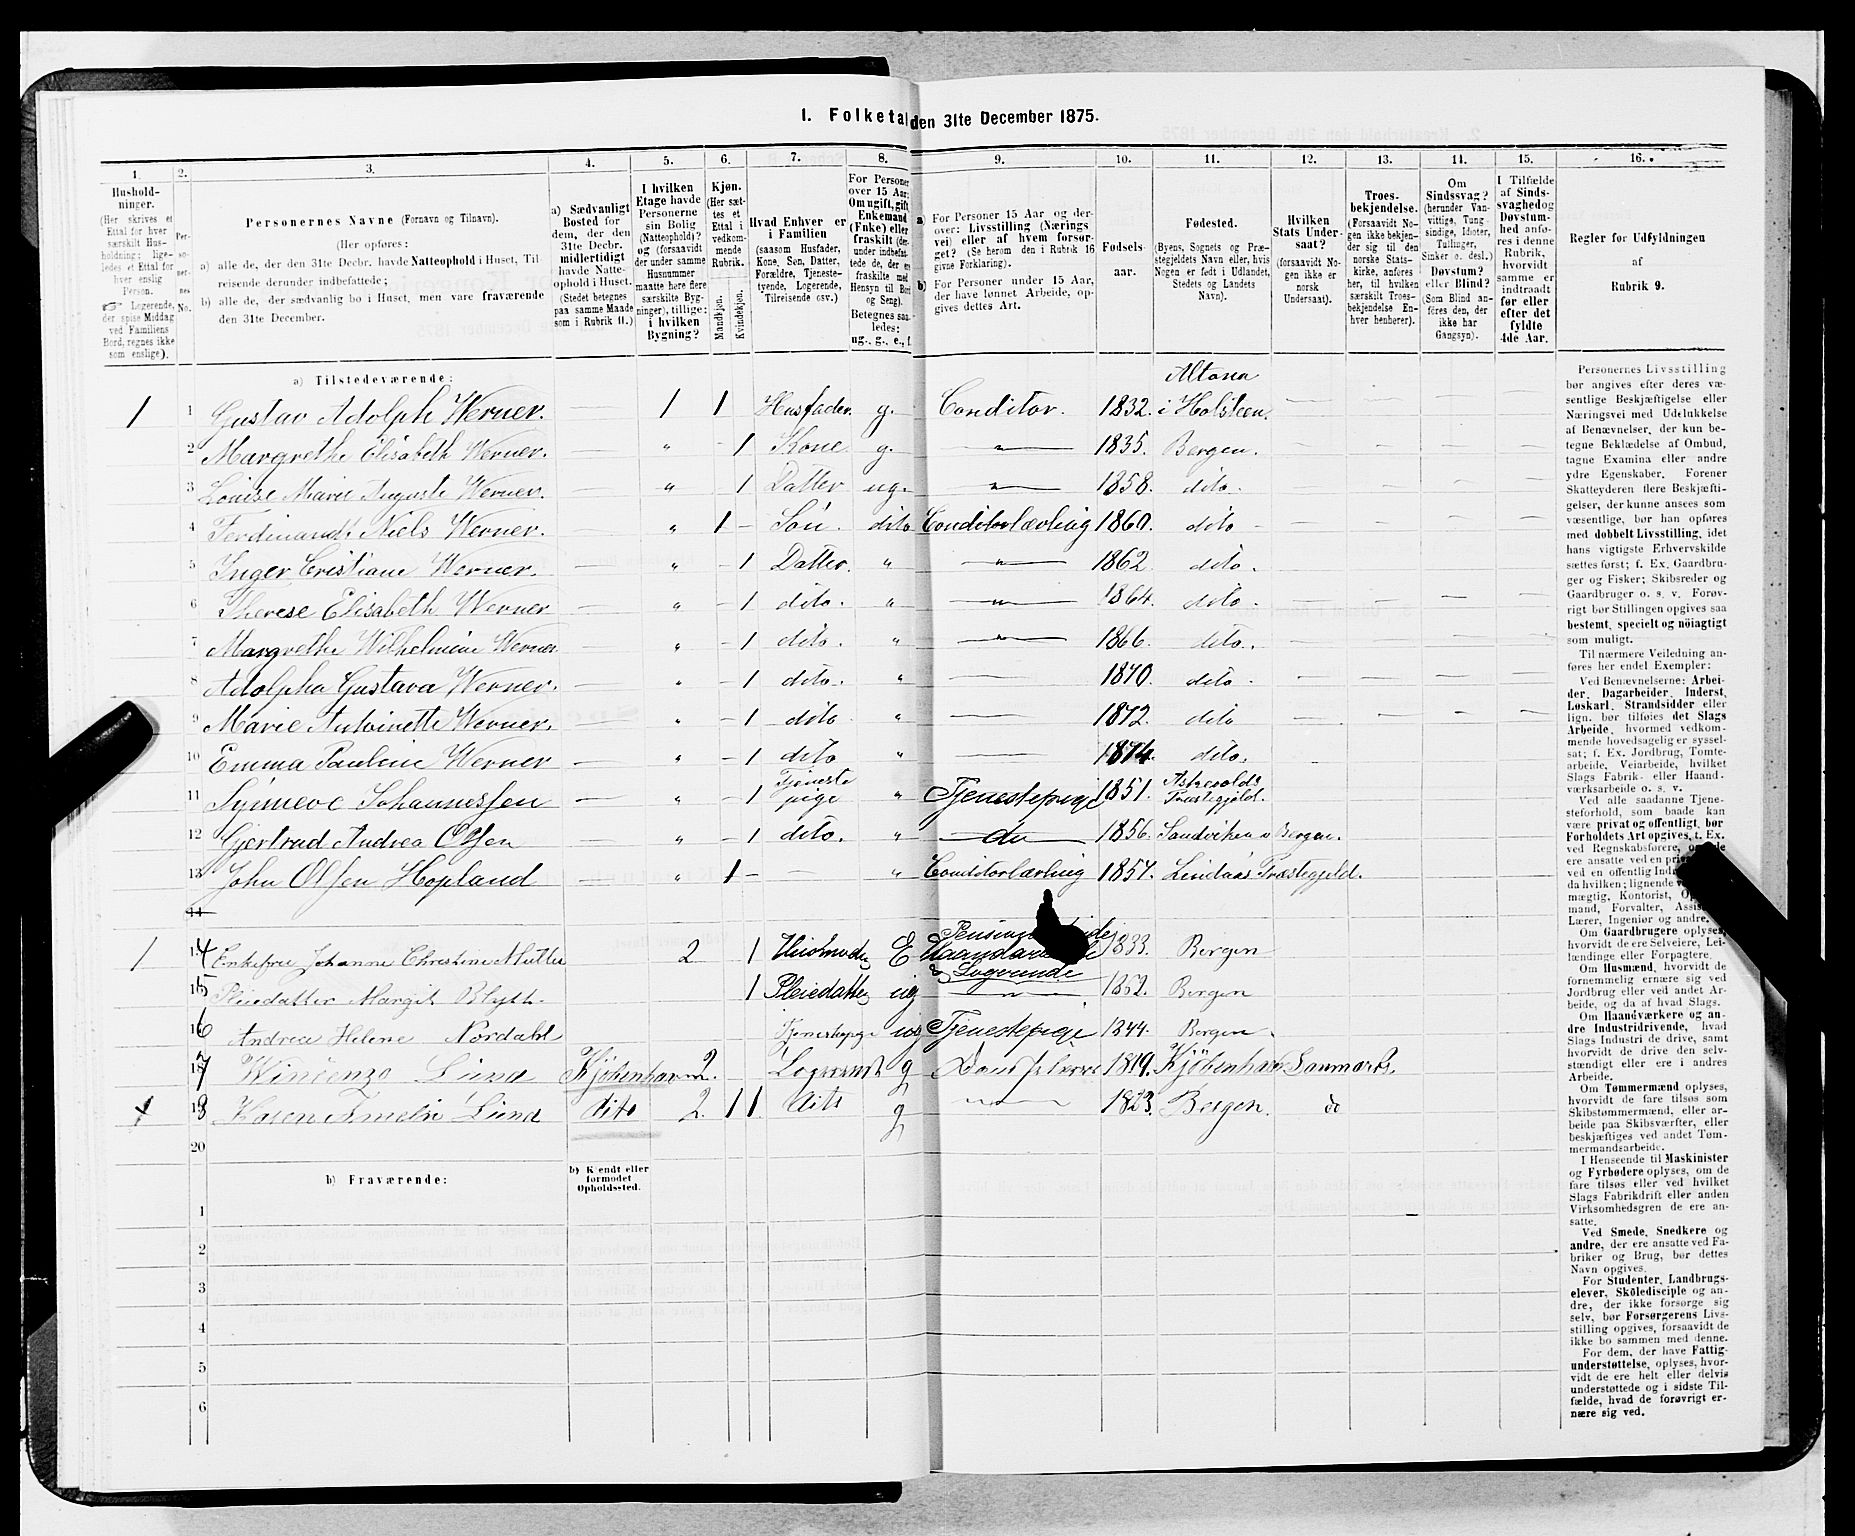 I. Folketal den 31te December 1875.
1. 2. 3. 4. 5. 6. 7. 8. 9. 10. 11. 12. 13. 14. 15. 16.
Husholdninger. (Her skrives et Ettal for hver særskilt Husholdning; ligeledes et Ettal for hver enslig Person.
Logerende, der spise Middag ved Familiens Bord, regnes ikke som enslige).
Personernes No.
Personernes Navne (Fornavn og Tilnavn).
(Her opføres:
a) alle de, der den 31te Decbr. havde Natteophold i Huset, Tilreisende derunder indbefattede;
b) alle de, der sædvanlig bo i Huset, men vare fraværende den 31te December.
a) Sædvanligt Bosted for dem, der den 31te Decbr. midlertidigt havde Natteophold i Huset.
(Stedet betegnes paa samme Maade som i Rubrik 11.)
I hvilken Etage havde Personerne sin Bolig (Natteophold)? og (forsaavidt der under samme Husnummer maatte høre flere særskilte Bygninger), tillige: i hvilken Bygning?
Kjøn. (Her sættes et Ettal i vedkommende Rubrik.
Mandkjøn. Kvindekjøn.
Hvad Enhver er i Familien
(saasom Husfader, Kone, Søn, Datter, Forældre, Tjenestetyende, Logerende, Tilreisende osv.).
For Personer over 15 Aar: Om ugift, gift, Enkemand (Enke) eller fraskilt (derunder indbefattede de, der ere fraskilte med Hensyn til Bord og Seng).
Betegnes saaledes: ug., g., e., f.
a) For Personer 15 Aar og derover: Livsstilling (Næringsvei) eller af hvem forsørget? (Se herom den i Rubrik 16 givne Forklaring).
b) For Personer under 15 Aar, der have lønnet Arbeide, opgives dettes Art.
Fødselsaar.
Fødested.
(Byens, Sognets og Præstegjeldets Navn eller, hvis Nogen er født i Udlandet, Stedets og Landets Navn).
Hvilken Stats Undersaat?
(forsaavidt Nogen ikke er norsk Undersaat).
Troesbekjendelse.
(Forsaavidt Nogen ikke bekjender sig til den norske Statskirke, anføres her, til hvilken særskilt Troesbekjendelse Enhver henhører).
Om Sindssvag?
(herunder Vanvittige, Tungsindige, Idioter, Tullinger, Sinker o. desl.)
Døvstum? eller Blind?
(Som Blind anføres den, der ikke har Gangsyn).
I Tilfælde af Sindssvaghed og Døvstumhed anføres i denne Rubrik, hvorvidt samme er indtraadt før eller efter det fyldte 4de Aar.
Regler for Udfyldningen af Rubrik 9.
a) Tilstedeværende:
1 1 Gustav Adolph Werner. — 1 1 Husfader g. Conditor. 1832. Altona i Holsteen. — — — —
2 Margrethe Elisabeth Werner. — " - 1 Kone g. —"— 1835. Bergen. — — — —
3 Louise Marie Auguste Werner. — " - 1 Datter ug. —"— 1858. dito. — — — —
4 Ferdinandt Niels Werner. — " 1 - Søn. dito Conditorlærling 1860. dito - — — —
5 Inger Cristiane Werner. — " - 1 Datter. " —"— 1862. dito. — — — —
6 Therese Elisabeth Werner — " - 1 dito. " —"— 1864. dito. — — — —
7 Margrethe Wilhelmine Werner — " - 1 dito. " —"— 1866. dito. — — — —
8 Adolpha Gustava Werner. — " - 1 dito. " — 1870. dito. — — — —
9 Marie Antoinette Werner. — " - 1 dito. " — 1872. dito — — — —
10 Emma Pauline Werner — " - 1 dito " — 1874. dito. — — — —
11 Synneve Johannessen — " - 1 Tjeneste pige " Tjenestepige 1851. Præstegjeld.
12 Gjertrud Andrea Olsen — " - 1 dito. " — do — 1856. Sandviken v Bergen.
13 John Olsen Hopland — " 1 - — " Conditorlærling 1857. Lindaas Præstegjeld.
14
1 14 Enkefru Johanne Christine 2 1 E Logerende 1833. Bergen
15 Pleiedatter Margit Blyth. 1 Pleiedatter ug —"— 1862. Bergen
16 Andrea Helene Nordahl Tjenestepige ug Tjenestepige 1844. Bergen.
17 Wincenzo Lund Kjøbenhavn. 2 Logerende g 1819. Kjøbenhavn Danmark.
18 Karen Amelie Lund dito 2. 1 1 dito g —"— 1823. Bergen. do
20
b) Fraværende:
b) Kjendt eller formodet Opholdssted.
1
2
3
4
5
6
Personernes Livsstilling
bør angives efter deres væ-
sentlige Beskjæftigelse eller
Næringsvei med Udelukkelse
af Benævnelser, der kun be-
tegne Beklædelse af Ombud,
tagne Examina eller andre
ydre Egenskaber. Forener
Skatteyderen flere Beskjæfti-
gelser, der kunne ansees som
væsentlige, bør han opføres
med dobbelt Livsstilling, idet
hans vigtigste Erhvervskilde
sættes først; f. Ex. Gaardbru-
ger og Fisker; Skibsreder og
Gaardbruger o. s. v. Forøv-
rigt bør Stillingen opgives saa
bestemt, specielt og nöiagtigt
som muligt.
Til nærmere Veiledning an-
føres her endel Exempler:
Ved Benævnelserne: Arbei-
der, Dagarbeider, Inderst,
Løskarl, Strandsidder eller
lign. bør tilføies det Slags
Arbeide, hvormed vedkom-
mende hovedsagelig er syssel-
sat; f. Ex. Jordbrug, Tomte-
arbeide, Veiarbeide, hvilket
Slags Fabrik- eller Haand-
værksarbeide o. s. v.
Ved alle saadanne Tjene-
steforhold, som baade kan
være privat og offentligt, bør
Forholdets Art opgives, t. Ex.
ved Regnskabsførere,
ere ansatte ved en
ved en offentlig
da hvilken; lignende
mægtig, Kontorist,
mand, Forvalter,
Lærer, Ingeniør og andre.
Om Gaardbrugere oplyses,
hvorvidt de ere Selveiere, Lei-
lændinge eller Forpagtere.
Om Husmænd, hvorvidt de
fornemmelig ernære sig ved
Jordbrug eller ved andet Ar-
beide, og da af hvad Slags.
Om Haandværkere og an-
dre Industridrivende, hvad
Slags Industri de drive, samt
hvorvidt de drive den selv-
stændigt eller ere i andres
Arbeide.
Om Tømmermænd oplyses,
hvorvidt de fare tilsøs som
Skibstømmermænd, eller ar-
beide paa Skibsværfter, eller
beskjæftiges ved andet Tøm-
mermandsarbeide.
I Henseende til Maskinister
og Fyrbødere oplyses, om de
fare tilsøs eller ved hvilket
Slags Fabrikdrift eller anden
Virksomhedsgren de ere an-
satte.
Ved Smede, Snedkere og
andre, der ere ansatte ved Fa-
briker og Brug, bør dettes
Navn opgives.
For Studenter, Landbrugs-
elever, Skoledisciple og an-
dre, der ikke forsørge sig
selv, bør Forsørgerens Livs-
stilling opgives, forsaavidt de
ikke bo sammen med denne.
For dem, der have Fattig-
understøttelse, oplyses, hvor-
vidt de ere helt eller delvis
understøttede og i sidste Til-
fælde, hvad de forøvrigt er-
nære sig ved.